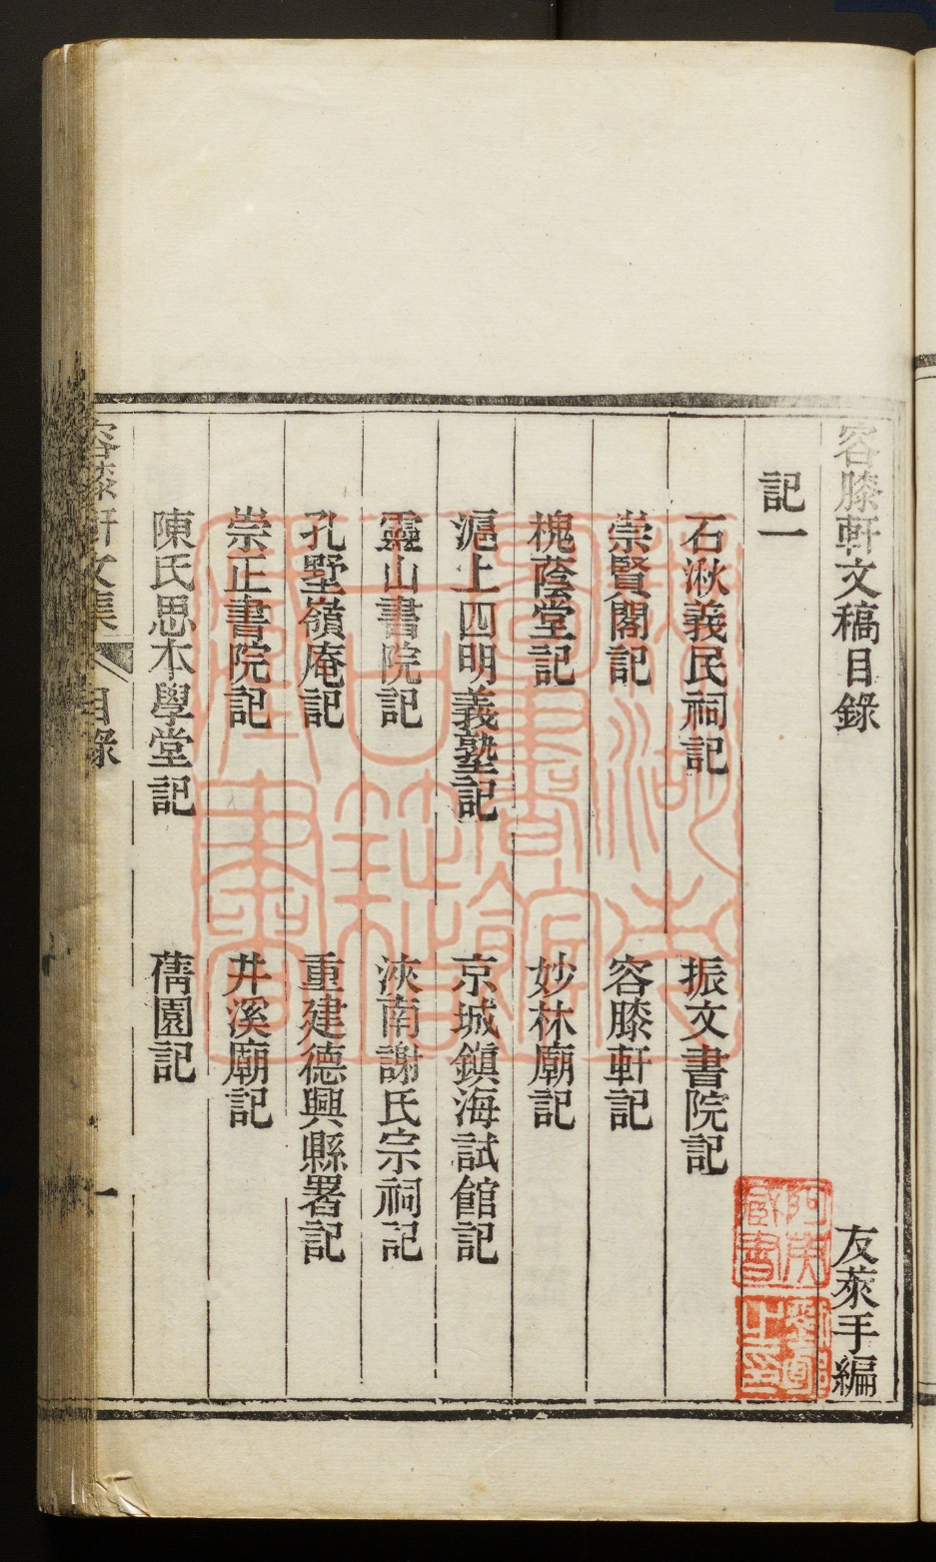 容膝軒文稿目錄 友萊手編
記一
石湫義民祠記 振文書院記
崇賢閣記 容膝軒記
槐蔭堂記 妙林廟記
滬上四明義塾記 京城鎮海試館記
靈山書院記 浹南謝氏宗祠記
孔墅嶺庵記 重建德興縣署記
崇正書院記 井溪廟記
陳氏思本學堂記 蒨園記
容膝軒文集 目錄 一